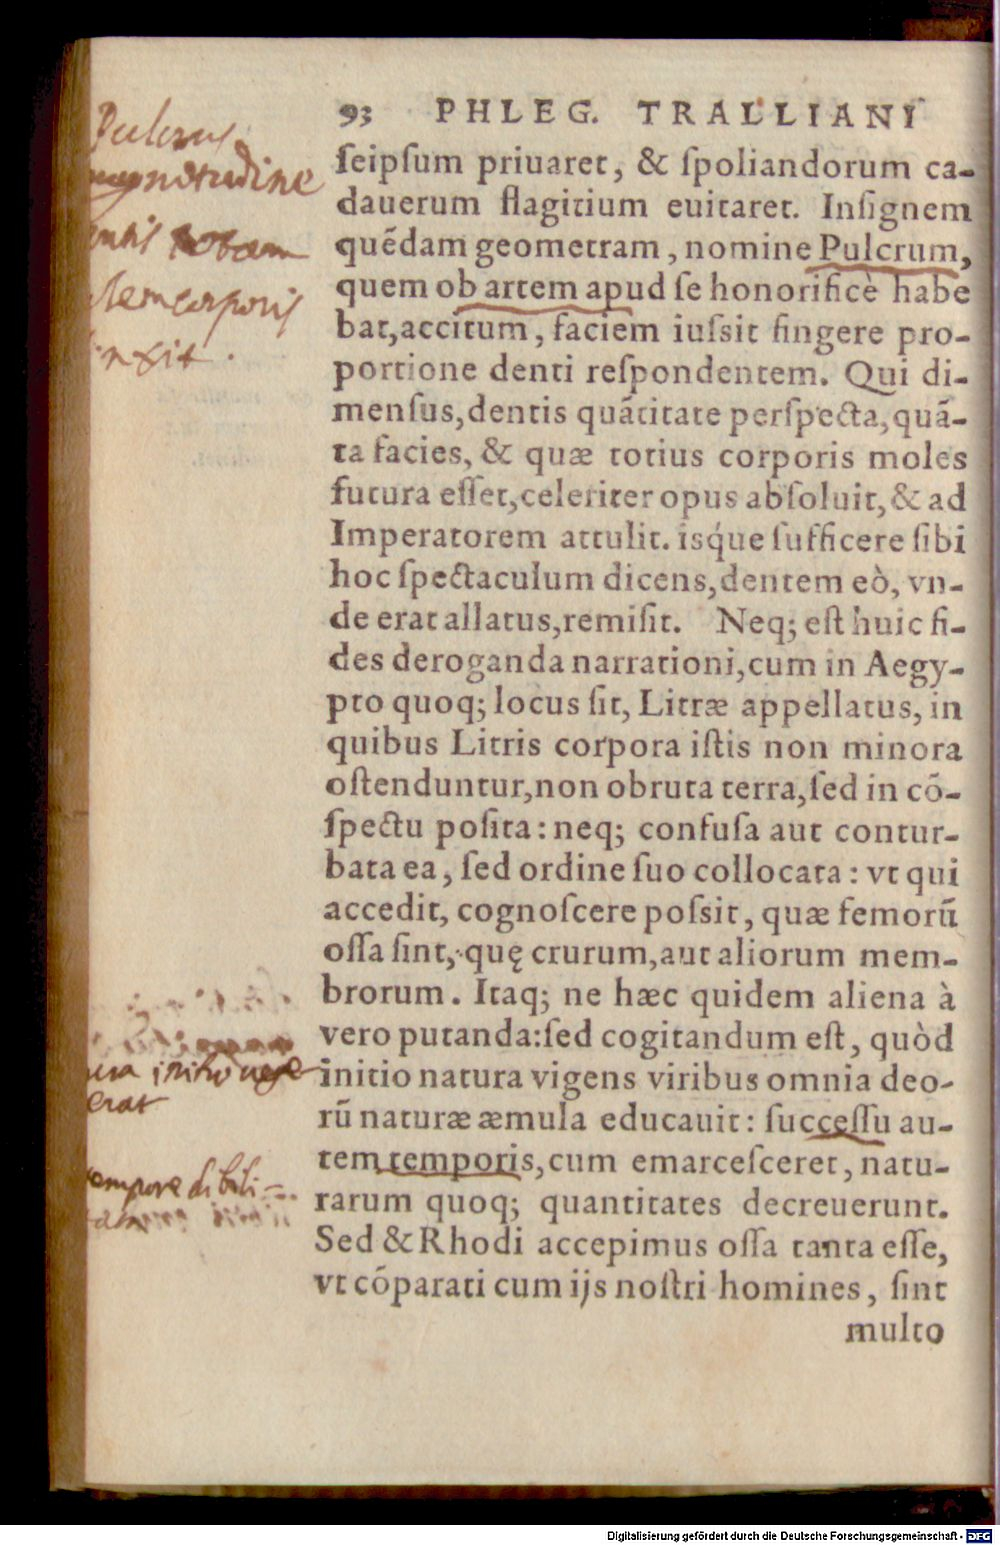 93 PHLEG. TRALLIANI
ſeipſum priuaret, & ſpoliandorum ca-
dauerum flagitium euitaret. Inſignem
quẽdam geometram, nomine Pulcrum,
quem ob artem apud ſe honorificè habe
bat, accitum, faciem iuſsit fingere pro-
portione denti reſpondentem. Qui di-
menſus, dentis quãtitate perſpecta, quã-
ta facies, & quæ totius corporis moles
futura eſſet, celeriter opus abſoluit, & ad
Imperatorem attulit. isq́ue ſufficere ſibi
hoc ſpectaculum dicens, dentem eò, vn-
de erat allatus, remiſit. Neq; eſt huic fi-
des deroganda narrationi, cum in Aegy-
pto quoq; locus ſit, Litræ appellatus, in
quibus Litris corpora iſtis non minora
oſtenduntur, non obruta terra, ſed in cō-
ſpectu poſita: neq; confuſa aut contur-
bata ea, ſed ordine ſuo collocata: vt qui
accedit, cognoſcere poſsit, quæ femorũ
oſſa ſint, quę crurum, aut aliorum mem-
brorum. Itaq; ne hæc quidem aliena à
vero putanda: ſed cogitandum eſt, quòd
initio natura vigens viribus omnia deo-
rũ naturæ æmula educauit: ſucceſſu au-
tem temporis, cum emarceſceret, natu-
rarum quoq; quantitates decreuerunt.
Sed & Rhodi accepimus oſſa tanta eſſe,
vt cōparati cum ijs noſtri homines, ſint
multo
Pulcrus
corporis
erat
Digitalisierung gefördert durch die Deutsche Forschungsgemeinschaft - DFG